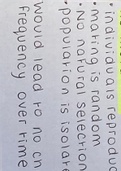 • Individuals reproduc
• mating is random
• No natural selection
• population is isolate
Would lead to no ch
frequency over time